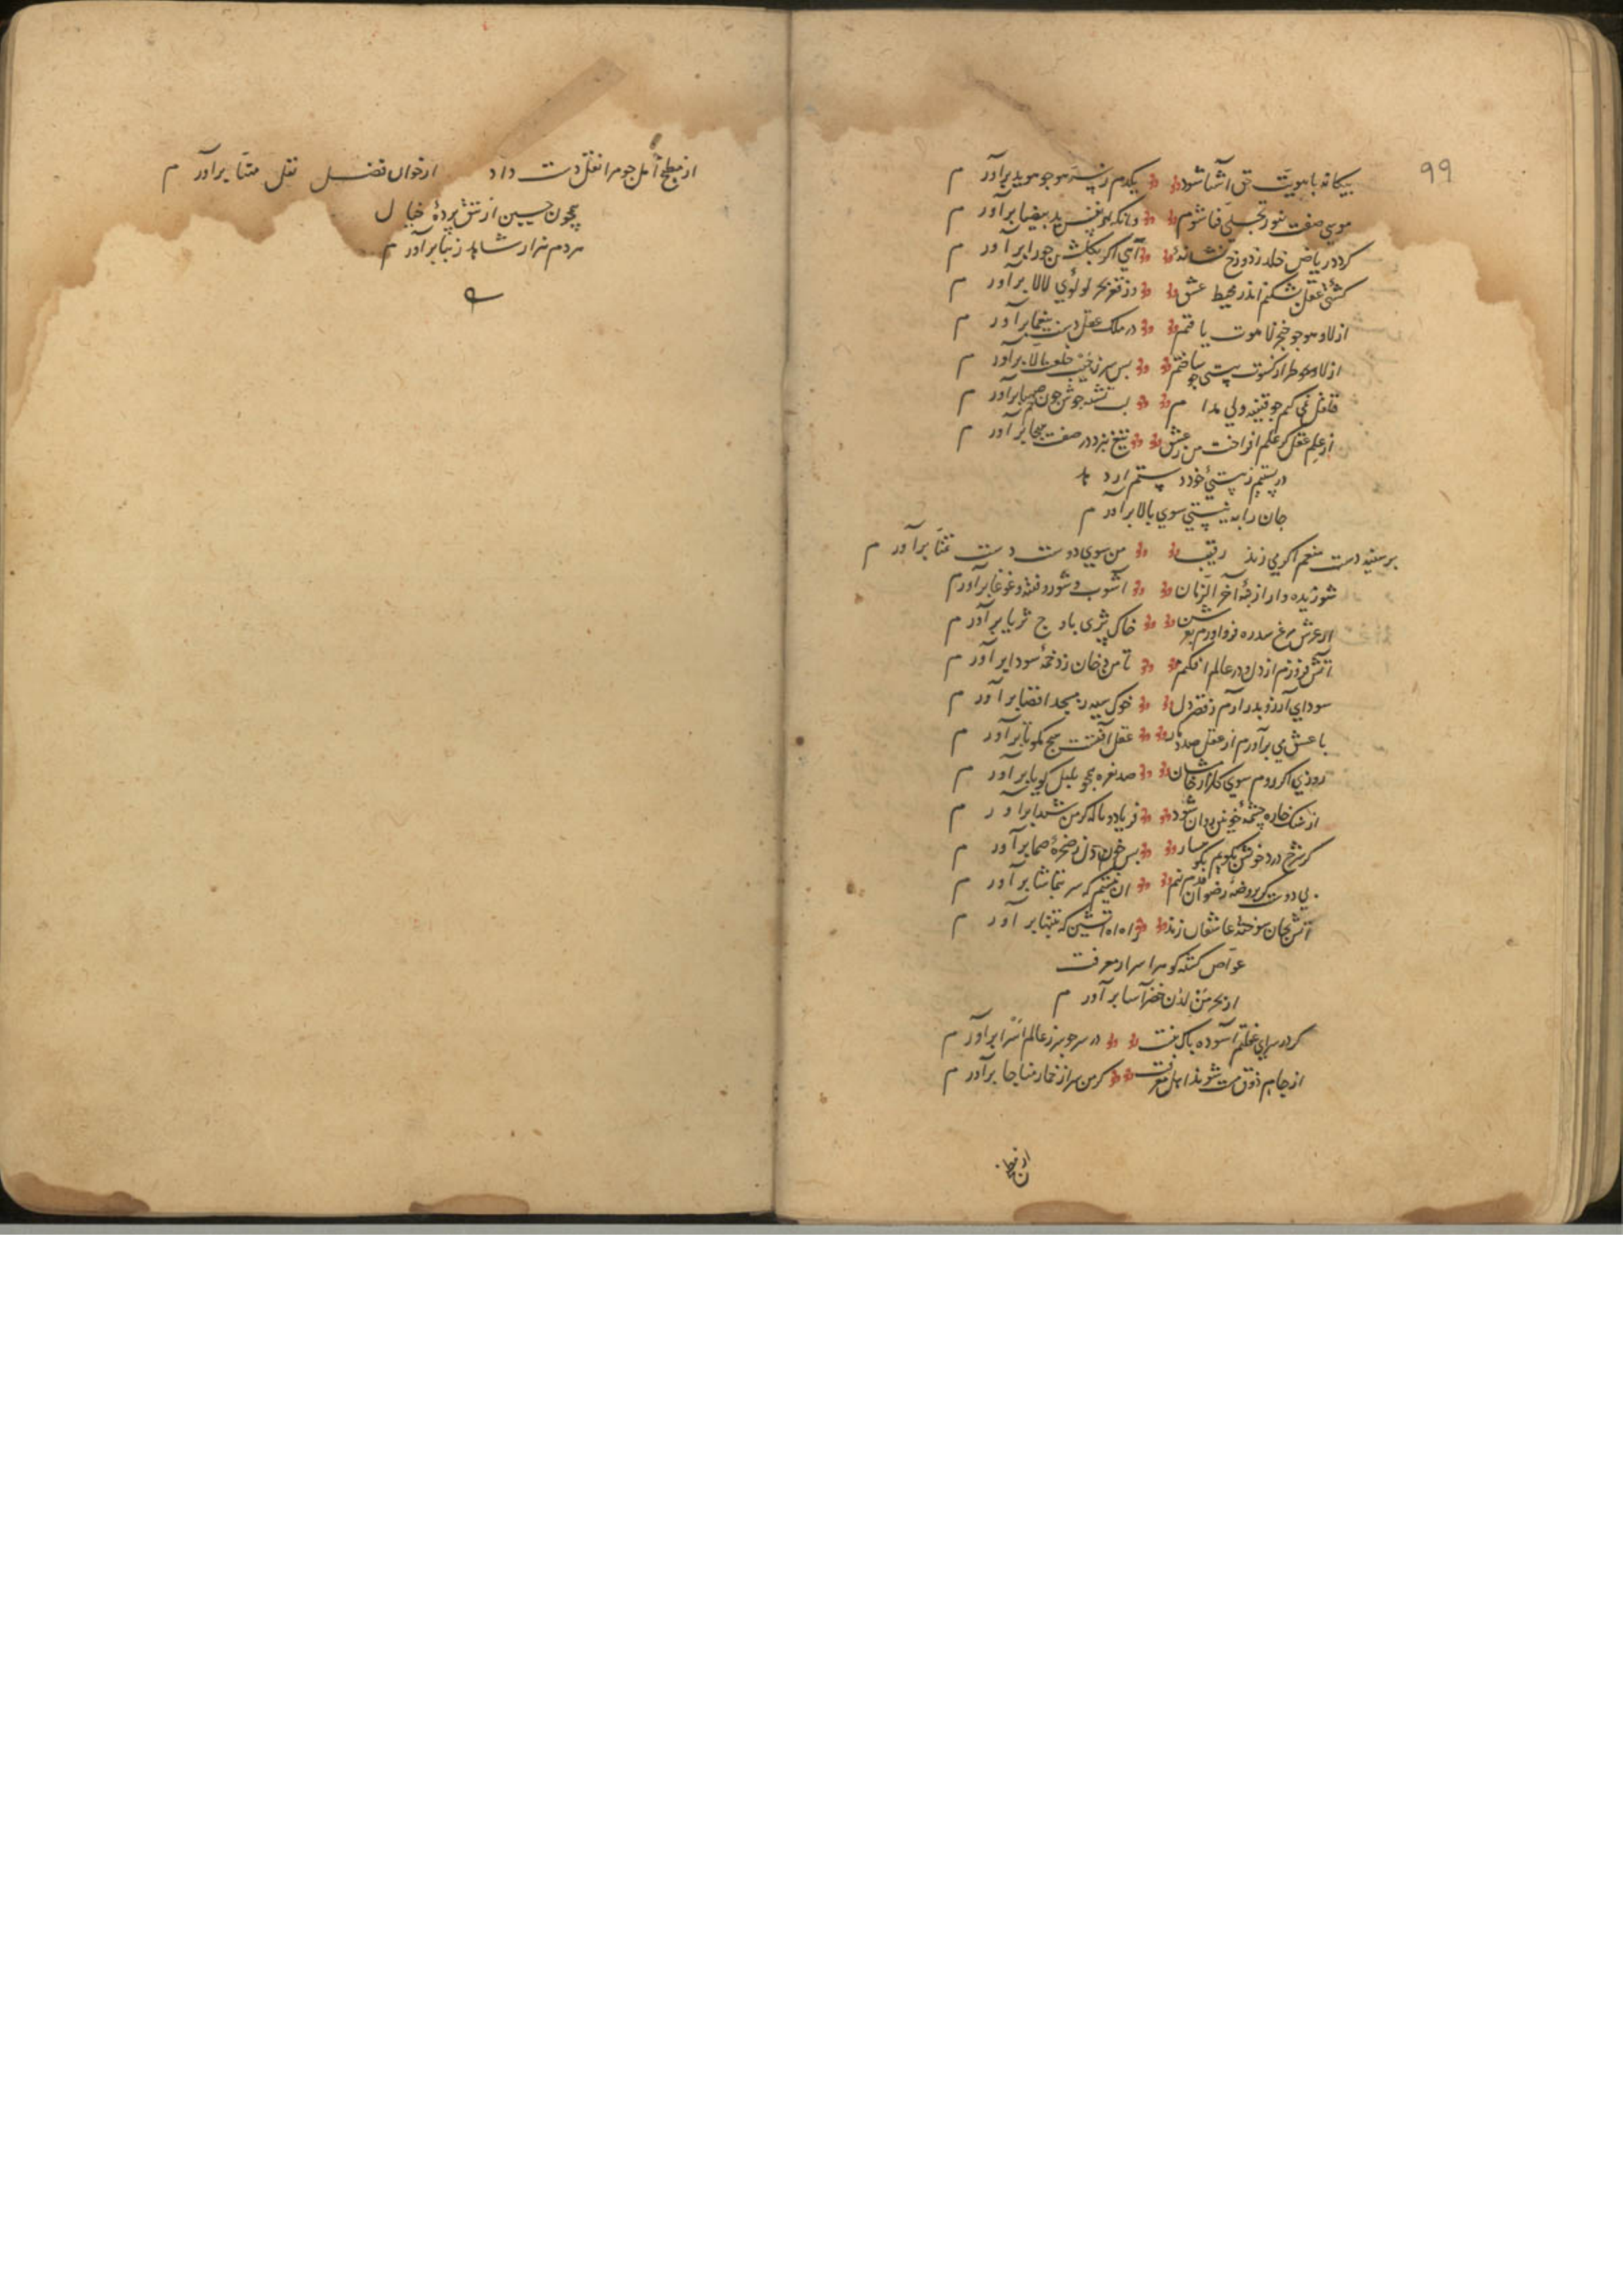 99
بیکانه با هویت حق آشنا شود یکدم ز نیـ هو جو هوید برآورم
موسی صفت بنور تجلی فنا شوم وانکه ز نفس ید بیضا برآورم
کردد ریاض خلد ز دوزخ نشانه آهی اکر بکلشن حورا برآورم
کشتی عقل بشکنم اندر محیط عشق وز قعر بحر لولوی لالا برآورم
از لا و هو جو خنجر لاهوت یافتم در ملک عقل دست بیغما برآورم
از لا و هو طراز کسوت هستی جو ساختم بس سر ز جیب خلعت الا برآورم
قلقل نمی کنم جو قنینه ولی مدام بی نشه جوش جون خم صهبا برآورم
از علم عقل کر علم افراخت من ز عشق تیغ نبرد در صف هیجا برآورم
در پستیم ز هستی خود در ستم ارد
جان را به نیستی سوی بالا برآورم
بر سینه دست منعم اکر می زند رقیب من سوی دوست دست تمنا برآورم
شوریده وار از فتنه آخر الزمان آشوب و شور و فتنه و غوغا برآورم
از عرش مرغ سدره فرو آورم بعشق خاک ثری باوج ثریا برآورم
آتش فروزم از دل و در عالم افکنم تا من دخان ز دخمه سودا برآورم
سودای آرزو بدر آرم ز قصر دل خوک سیه ز مسجد اقصا برآورم
با عشق می برآورم از عقل صد دمار عقل آفتست هیج مکو تا برآورم
روزی اکر روم سوی کلزار مخانشان صد نعره همجو بلبل کویا برآورم
از سنک خاره جشمه خونین روان شود فریاد و ناله کر من شیدا برآورم
کر شرح درد خویش بکویم بکوهسار بس خون دل ز صخره صما برآورم
بی دوست کر بروضه رضوان قدم نهم آن نیستم که سر بتماشا برآورم
آتش بجان سوخته عاشقان زند آه آتشین که تنها برآورم
غواص کشته کوهر اسرار معرفت
از بحر من لدن خضر آسا برآورم
کر در سرای غفلتم آسوده باک نیست در سر جو سر ز عالم اسرا برآورم
از جام ذوق مست شوند اهل معرفت کر من سر از خمار مناجا برآورم
از مطبخ امل جو مرا نقل دست داد از خوان فضل نقل مثنا برآورم
همجون حسین از تتق پرده خیال
هر دم هزار شاهد زیبا برآورم